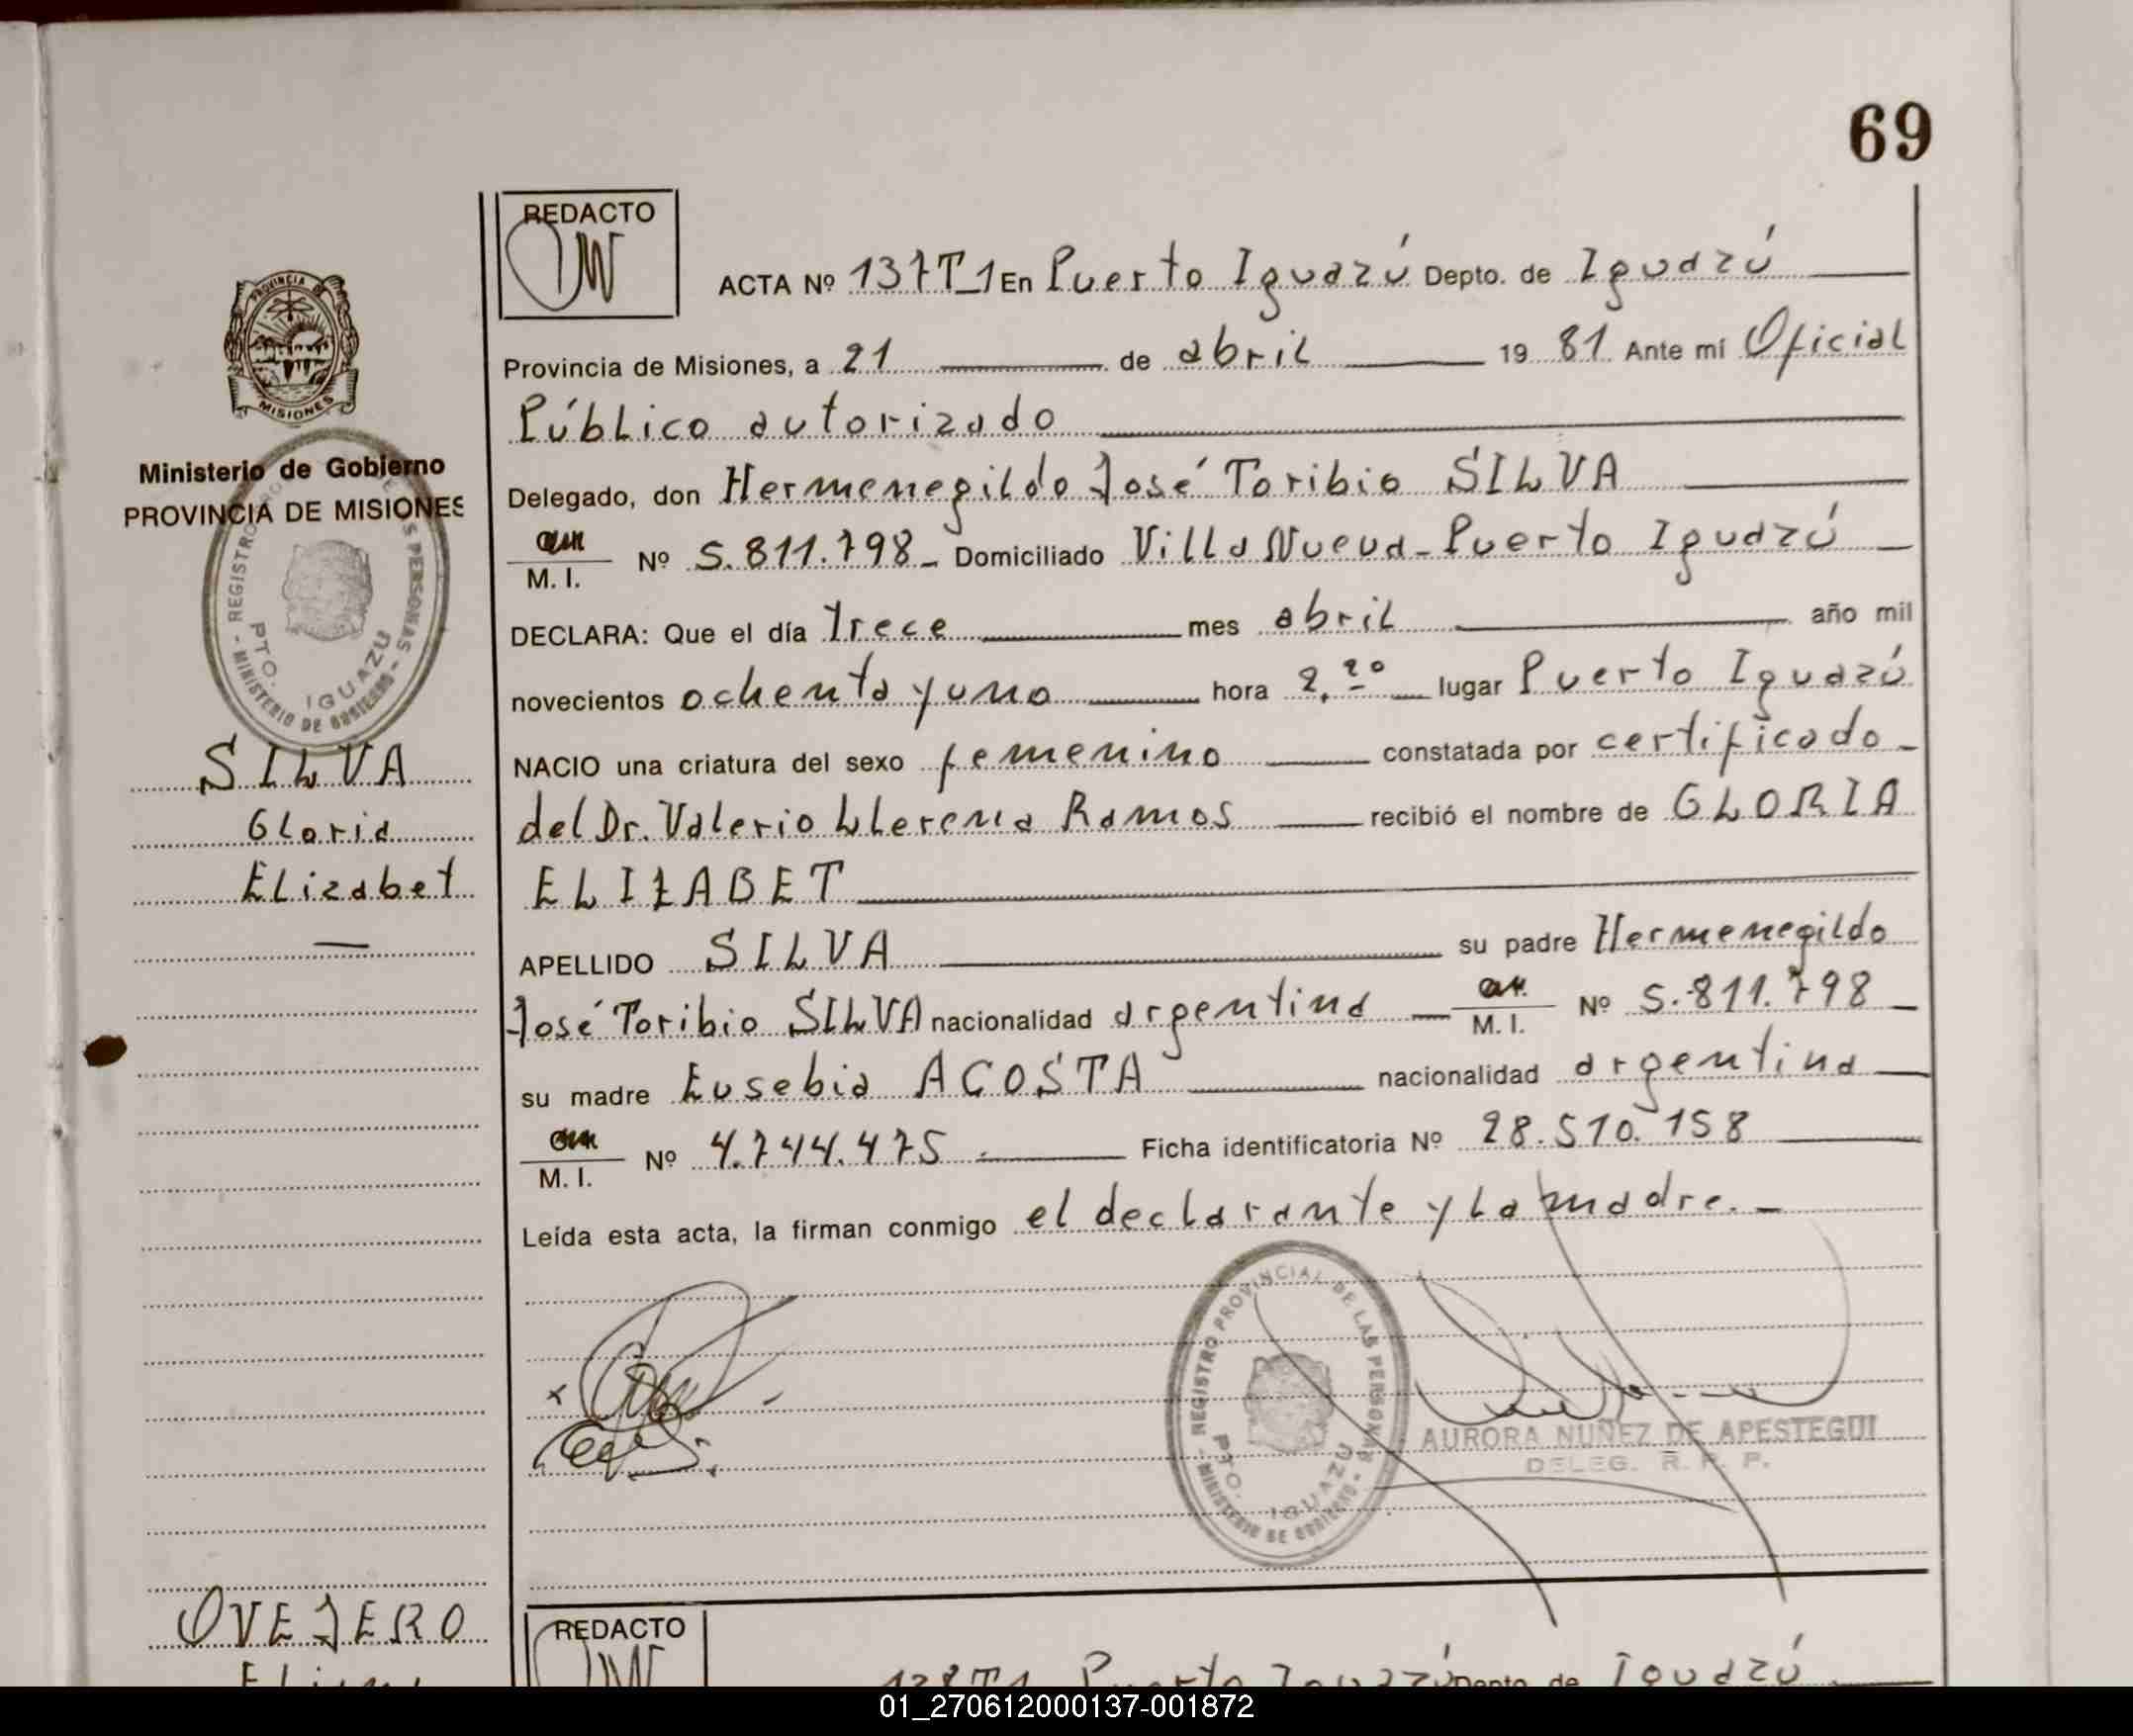 69
REDACTO
ACTA Nº 137T_1 En Puerto Iguazú Depto. de Iguazú
Provincia de Misiones, a 21 de abril 19 81 Ante mí Oficial
Público autorizado
Delegado, don Hermenegildo José Toribio SILVA
M. I. Nº 5.811.798 Domiciliado Villa Nueva - Puerto Iguazú
DECLARA: Que el día trece mes abril año mil
novecientos ochenta y uno hora 2,20 lugar Puerto Iguazú
NACIO una criatura del sexo femenino constatada por certificado
del Dr. Valerio Llerena Ramos recibió el nombre de GLORIA
ELIZABET
APELLIDO SILVA su padre Hermenegildo
José Toribio SILVA nacionalidad argentina M. I. Nº 5.811.798
su madre Eusebia ACOSTA nacionalidad argentina
M. I. Nº 4.744.475 Ficha identificatoria Nº 28.510.158
Leída esta acta, la firman conmigo el declarante y la madre.
PROVINCIA DE
MISIONES
Ministerio de Gobierno
PROVINCIA DE MISIONES
PTO. IGUAZU
SILVA
Gloria
Elizabet
REGISTRO PROVINCIAL DE LAS PERSONAS - MINISTERIO DE GOBIERNO -
PTO. IGUAZU
AURORA NUÑEZ DE APESTEGUI
DELEG. R. P. P.
OVEJERO
REDACTO
138T1 Puerto Iguazú Depto de Iguazú
01_270612000137-001872